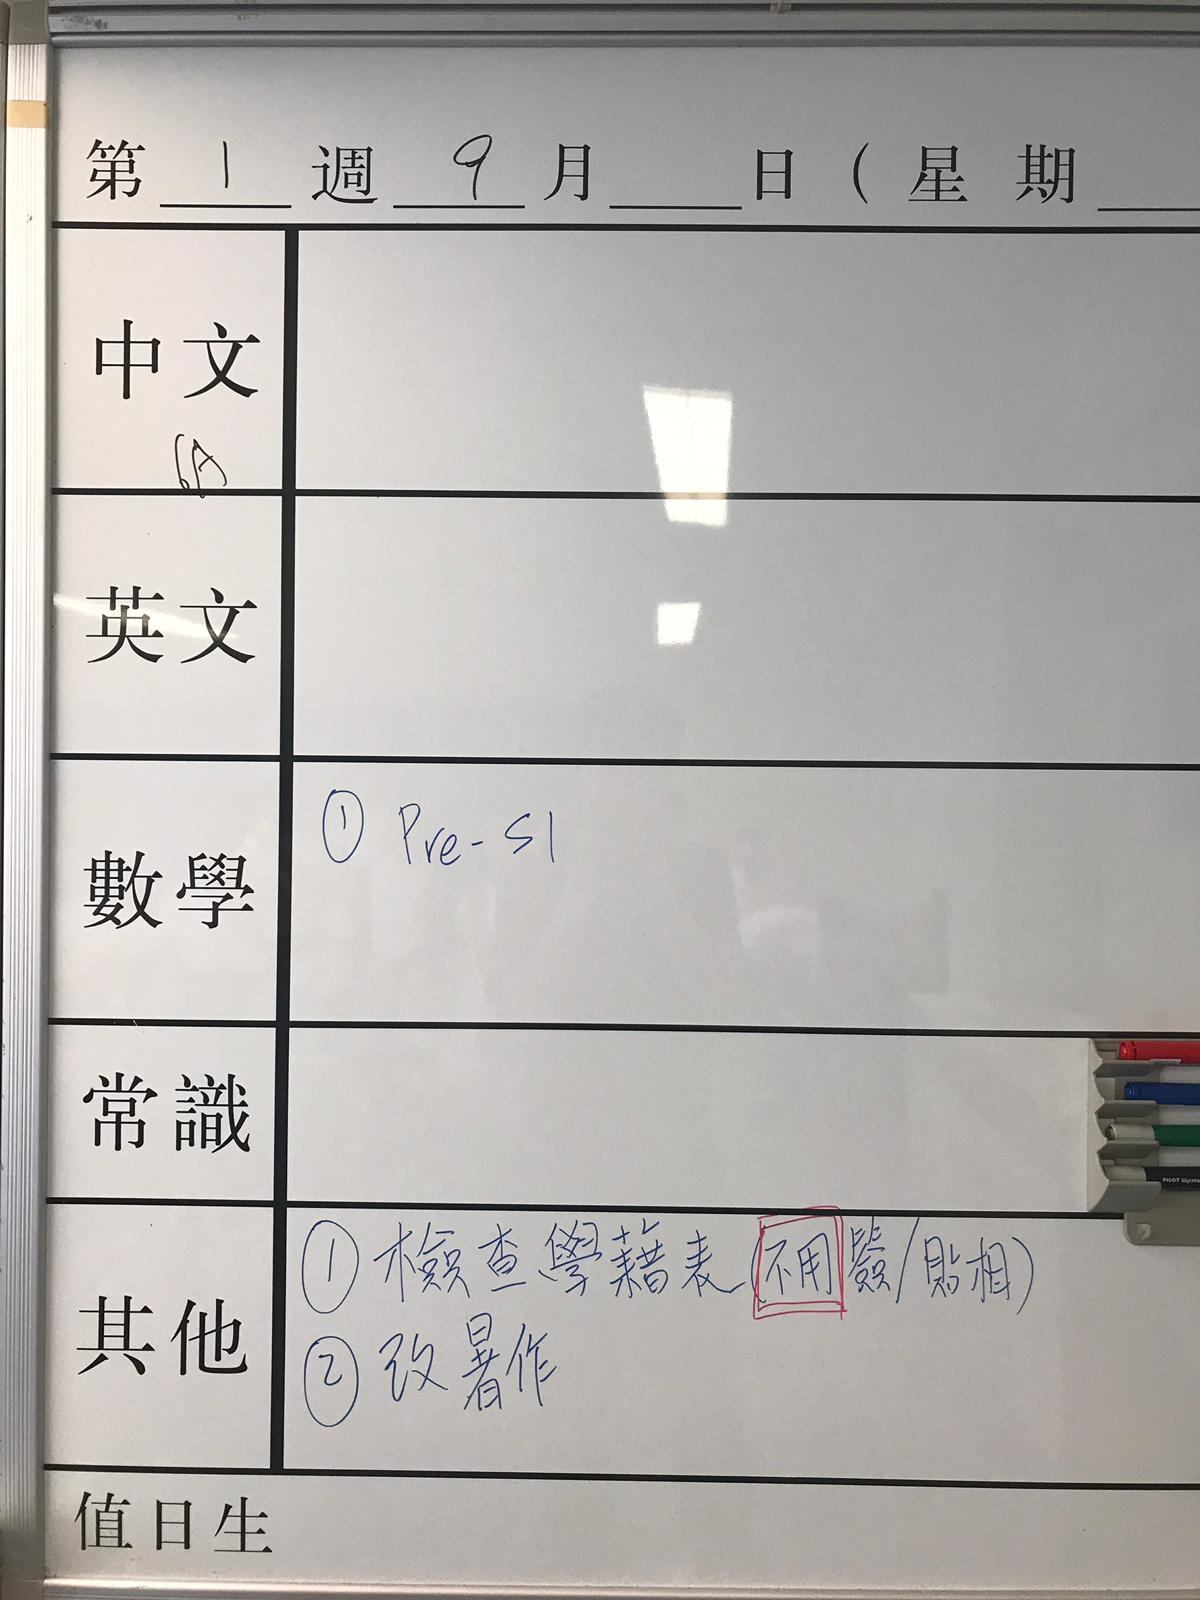 第 1 週 9 月 日 ( 星 期
中文
6A
英文
數學
① Pre-S1
常識
其他
① 檢查學藉表(不用簽/貼相)
② 改暑作
值日生
PILOT